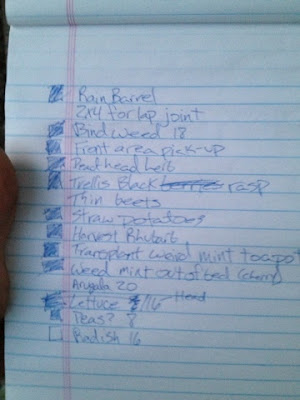 Rain Barrel
2x4 for lap joint
Bindweed 18
Front area pick-up
Dead head
Trellis Black berries rasp
Thin beets
Straw potatoes
Harvest Rhubarb
Transplant weird mint to apo
Weed mint out of bed (cherry)
Arugala 20
Lettuce /16 Head
Peas? 8
Radish 16